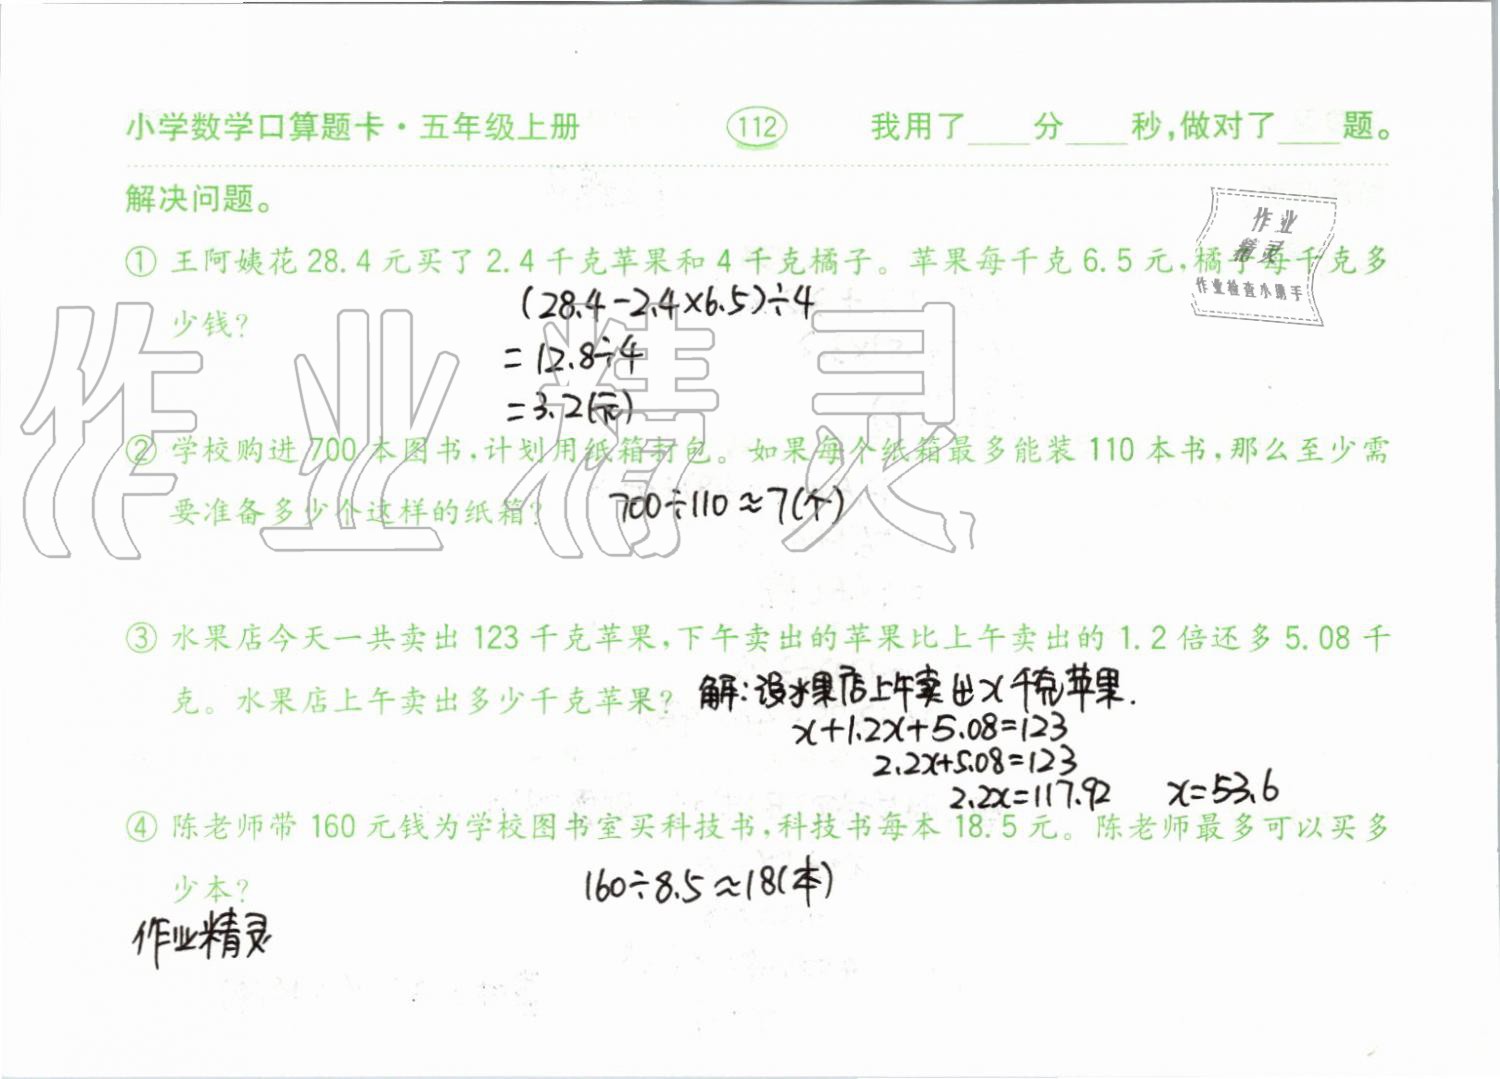 小学数学口算题卡·五年级上册 112 我用了____分____秒,做对了____题。
解决问题。
作业
精灵
作业检查小助手
① 王阿姨花28.4元买了2.4千克苹果和4千克橘子。苹果每千克6.5元,橘子每千克多
少钱?
(28.4-2.4×6.5)÷4
=12.8÷4
=3.2(元)
② 学校购进700本图书,计划用纸箱打包。如果每个纸箱最多能装110本书,那么至少需
要准备多少个这样的纸箱?
700÷110≈7(个)
③ 水果店今天一共卖出123千克苹果,下午卖出的苹果比上午卖出的1.2倍还多5.08千
克。水果店上午卖出多少千克苹果?
解:设水果店上午卖出x千克苹果.
x+1.2x+5.08=123
2.2x+5.08=123
2.2x=117.92 x=53.6
④ 陈老师带160元钱为学校图书室买科技书,科技书每本18.5元。陈老师最多可以买多
少本?
160÷8.5≈18(本)
作业精灵
作业精灵